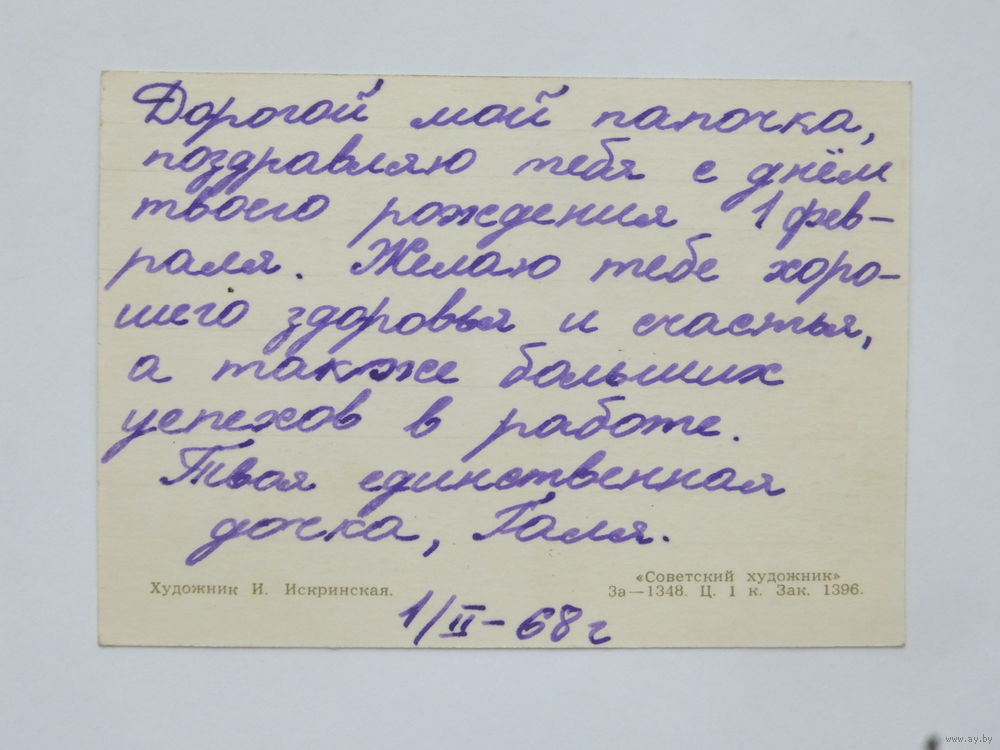 Дорогой мой папочка,
поздравляю тебя с днём
твоего рождения 1 фев-
раля. Желаю тебе хоро-
шего здоровья и счастья,
а также больших
успехов в работе.
Твая единственная
дочка, Галя.
Художник И. Искринская.
«Советский художник»
За—1348. Ц. 1 к. Зак. 1396.
1/II-68 г
www.ay.by